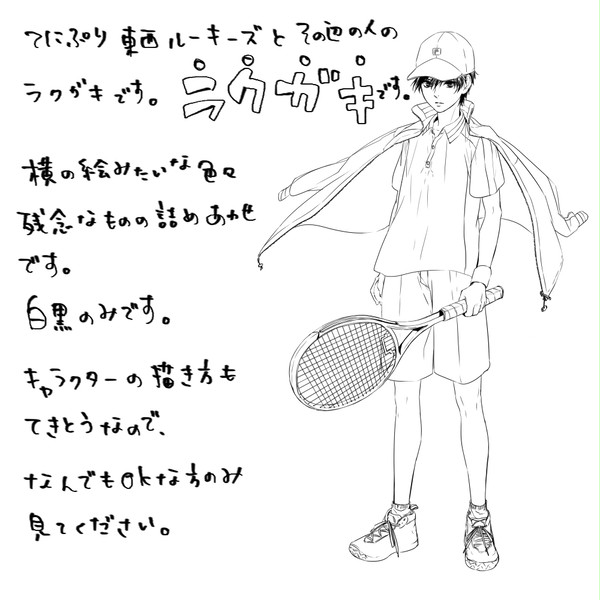 てにぷり 東西ルーキーズと その他の人の
ラクガキです。 ラクガキです。
横の絵みたいな色々
残念なものの詰めあわせ
です。
白黒のみです。
キャラクターの描き方も
てきとうなので、
なんでもOkな方のみ
見てください。